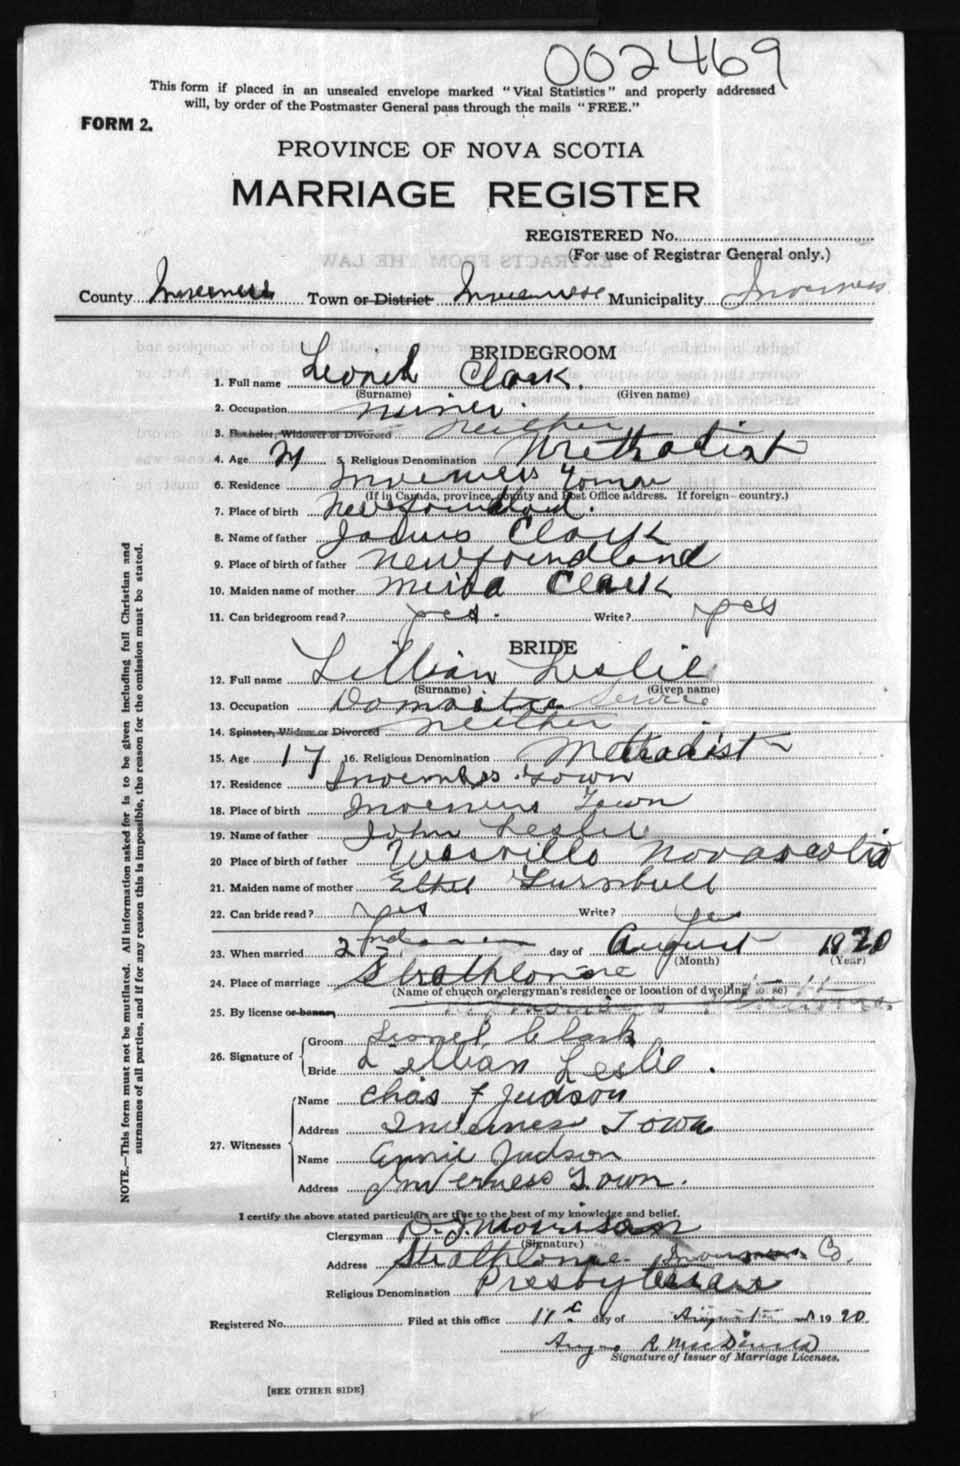 002469
This form if placed in an unsealed envelope marked "Vital Statistics" and properly addressed
will, by order of the Postmaster General pass through the mails "FREE."
FORM 2.
PROVINCE OF NOVA SCOTIA
MARRIAGE REGISTER
REGISTERED No.
(For use of Registrar General only.)
County Inverness Town or District Inverness Municipality Inverness
BRIDEGROOM
1. Full name Lionel Clark.
(Surname) (Given name)
2. Occupation miner
3. Bachelor, Widower or Divorced neither
4. Age 5. Religious Denomination Methodist
6. Residence Inverness Town
(If in Canada, province, county and Post Office address. If foreign—country.)
7. Place of birth Newfoundland.
8. Name of father Clark
9. Place of birth of father Newfoundland
10. Maiden name of mother Clark
11. Can bridegroom read? yes. Write? yes
BRIDE
12. Full name Lillian Leslie
(Surname) (Given name)
13. Occupation Domestic Service
14. Spinster, Widow or Divorced neither
15. Age 17 16. Religious Denomination Methodist
17. Residence Inverness Town
18. Place of birth Inverness Town
19. Name of father John Leslie
20 Place of birth of father Wesville Nova scotia
21. Maiden name of mother Ethel Turnbull
22. Can bride read? yes Write? yes
23. When married 2nd day of August 1920
(Month) (Year)
24. Place of marriage Strathlorne
(Name of church or clergyman's residence or location of dwelling house)
25. By license or banns
26. Signature of Groom Lionel Clark
Bride Lillian Leslie.
27. Witnesses Name Chas F Judson
Address Inverness Town
Name Annie Judson
Address Inverness Town.
I certify the above stated particulars are true to the best of my knowledge and belief.
Clergyman D. J. Morrison
(Signature)
Address Strathlorne Inverness Co.
Religious Denomination Presbyterian
Registered No. Filed at this office 11 day of August 1920
Angus R MacDonald
Signature of Issuer of Marriage Licenses.
[SEE OTHER SIDE]
NOTE.—This form must not be mutilated. All information asked for is to be given including full Christian and
surnames of all parties, and if for any reason this is impossible, the reason for the omission must be stated.